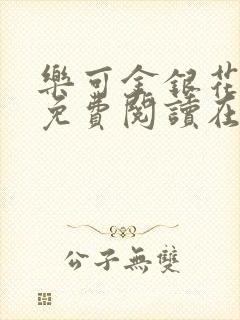 樂可金銀花
免費閱讀在
公子無雙